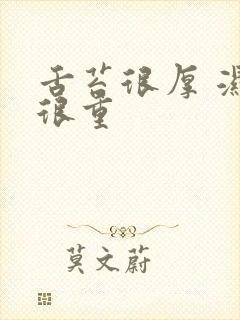 舌苔很厚 湿
很重
莫文蔚